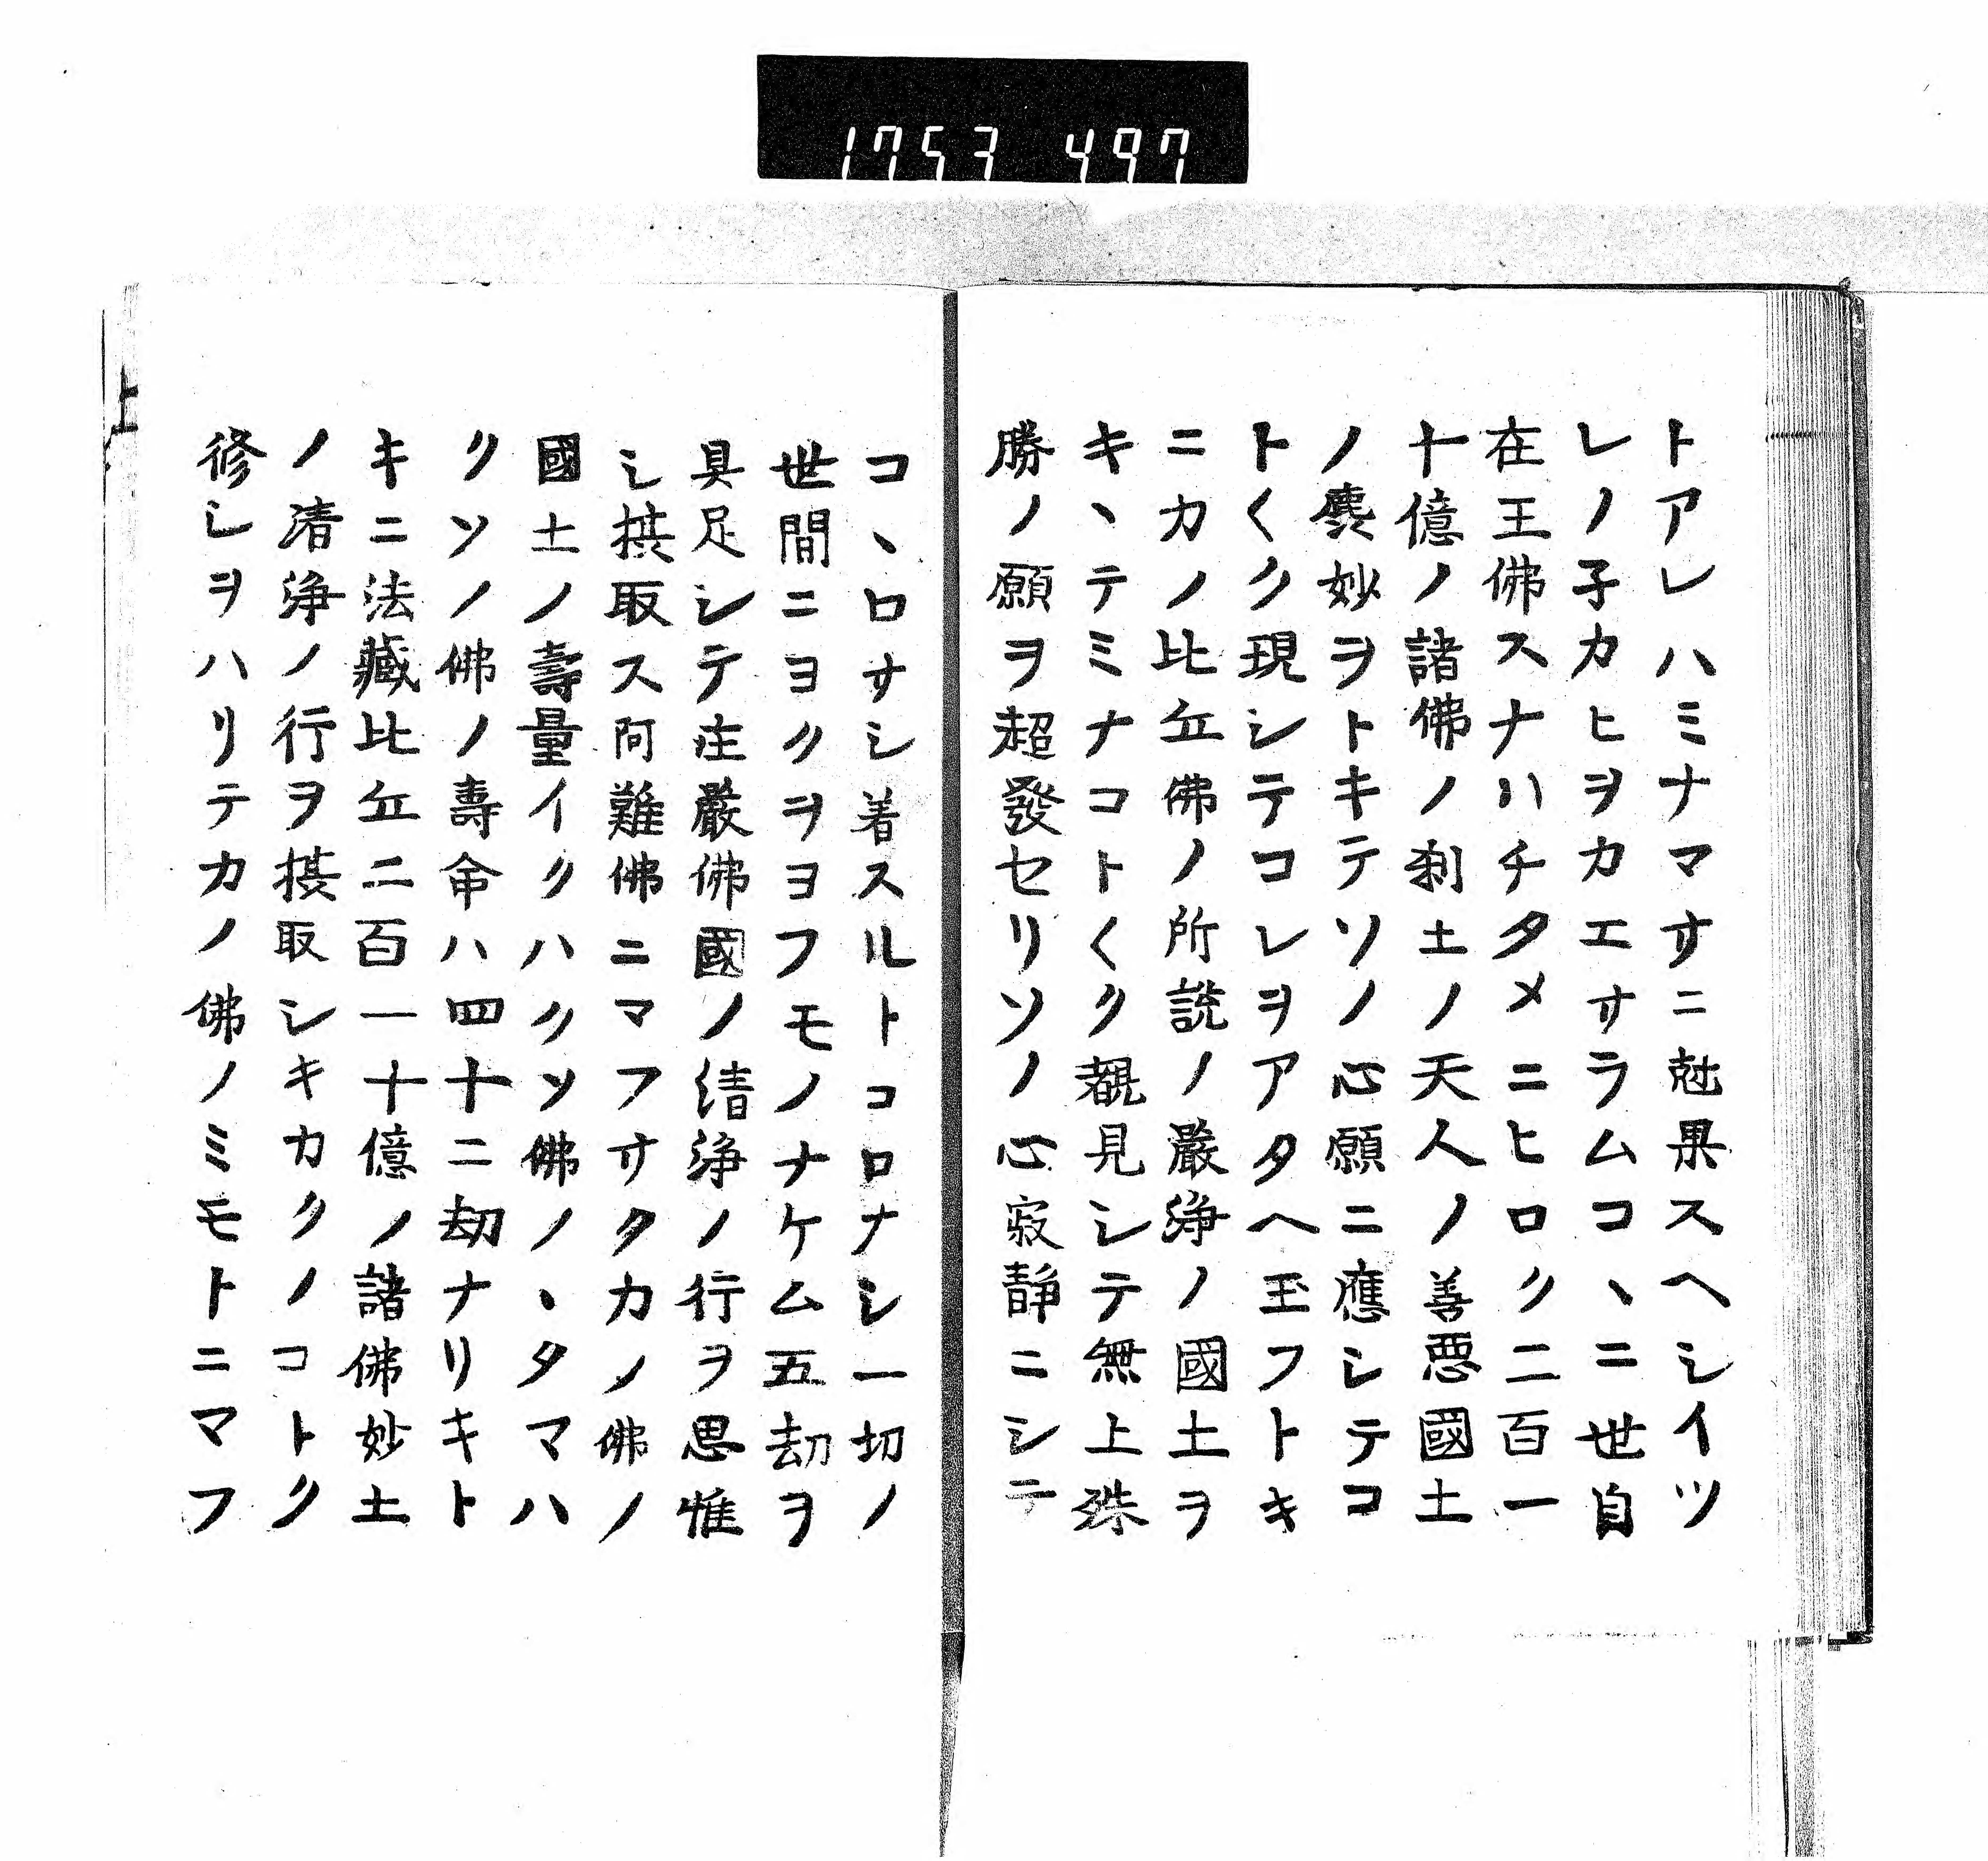 1753 497
トアレハミナマサニ尅果スヘシイツ
レノ子カヒヲカエサラムコヽニ世自
在王佛スナハチタメニヒロク二百一
十億ノ諸佛ノ刹土ノ天人ノ善悪國土
ノ麁妙ヲトキテソノ心願ニ應シテコ
トくク現シテコレヲアタヘ玉フトキ
ニカノ比丘佛ノ所説ノ嚴浄ノ國土ヲ
キヽテミナコトくク覩見シテ無上殊
勝ノ願ヲ超發セリソノ心寂静ニシテ
コヽロサシ着スルトコロナシ一切ノ
世間ニヨクヲヨフモノナケム五劫ヲ
具足シテ荘嚴佛國ノ清浄ノ行ヲ思惟
シ摂取ス阿難佛ニマフサクカノ佛ノ
國土ノ壽量イクハクソ佛ノヽタマハ
クソノ佛ノ壽命ハ四十二劫ナリキト
キニ法藏比丘二百一十億ノ諸佛妙土
ノ清浄ノ行ヲ摂取シキカクノコトク
修シヲハリテカノ佛ノミモトニマフ
上